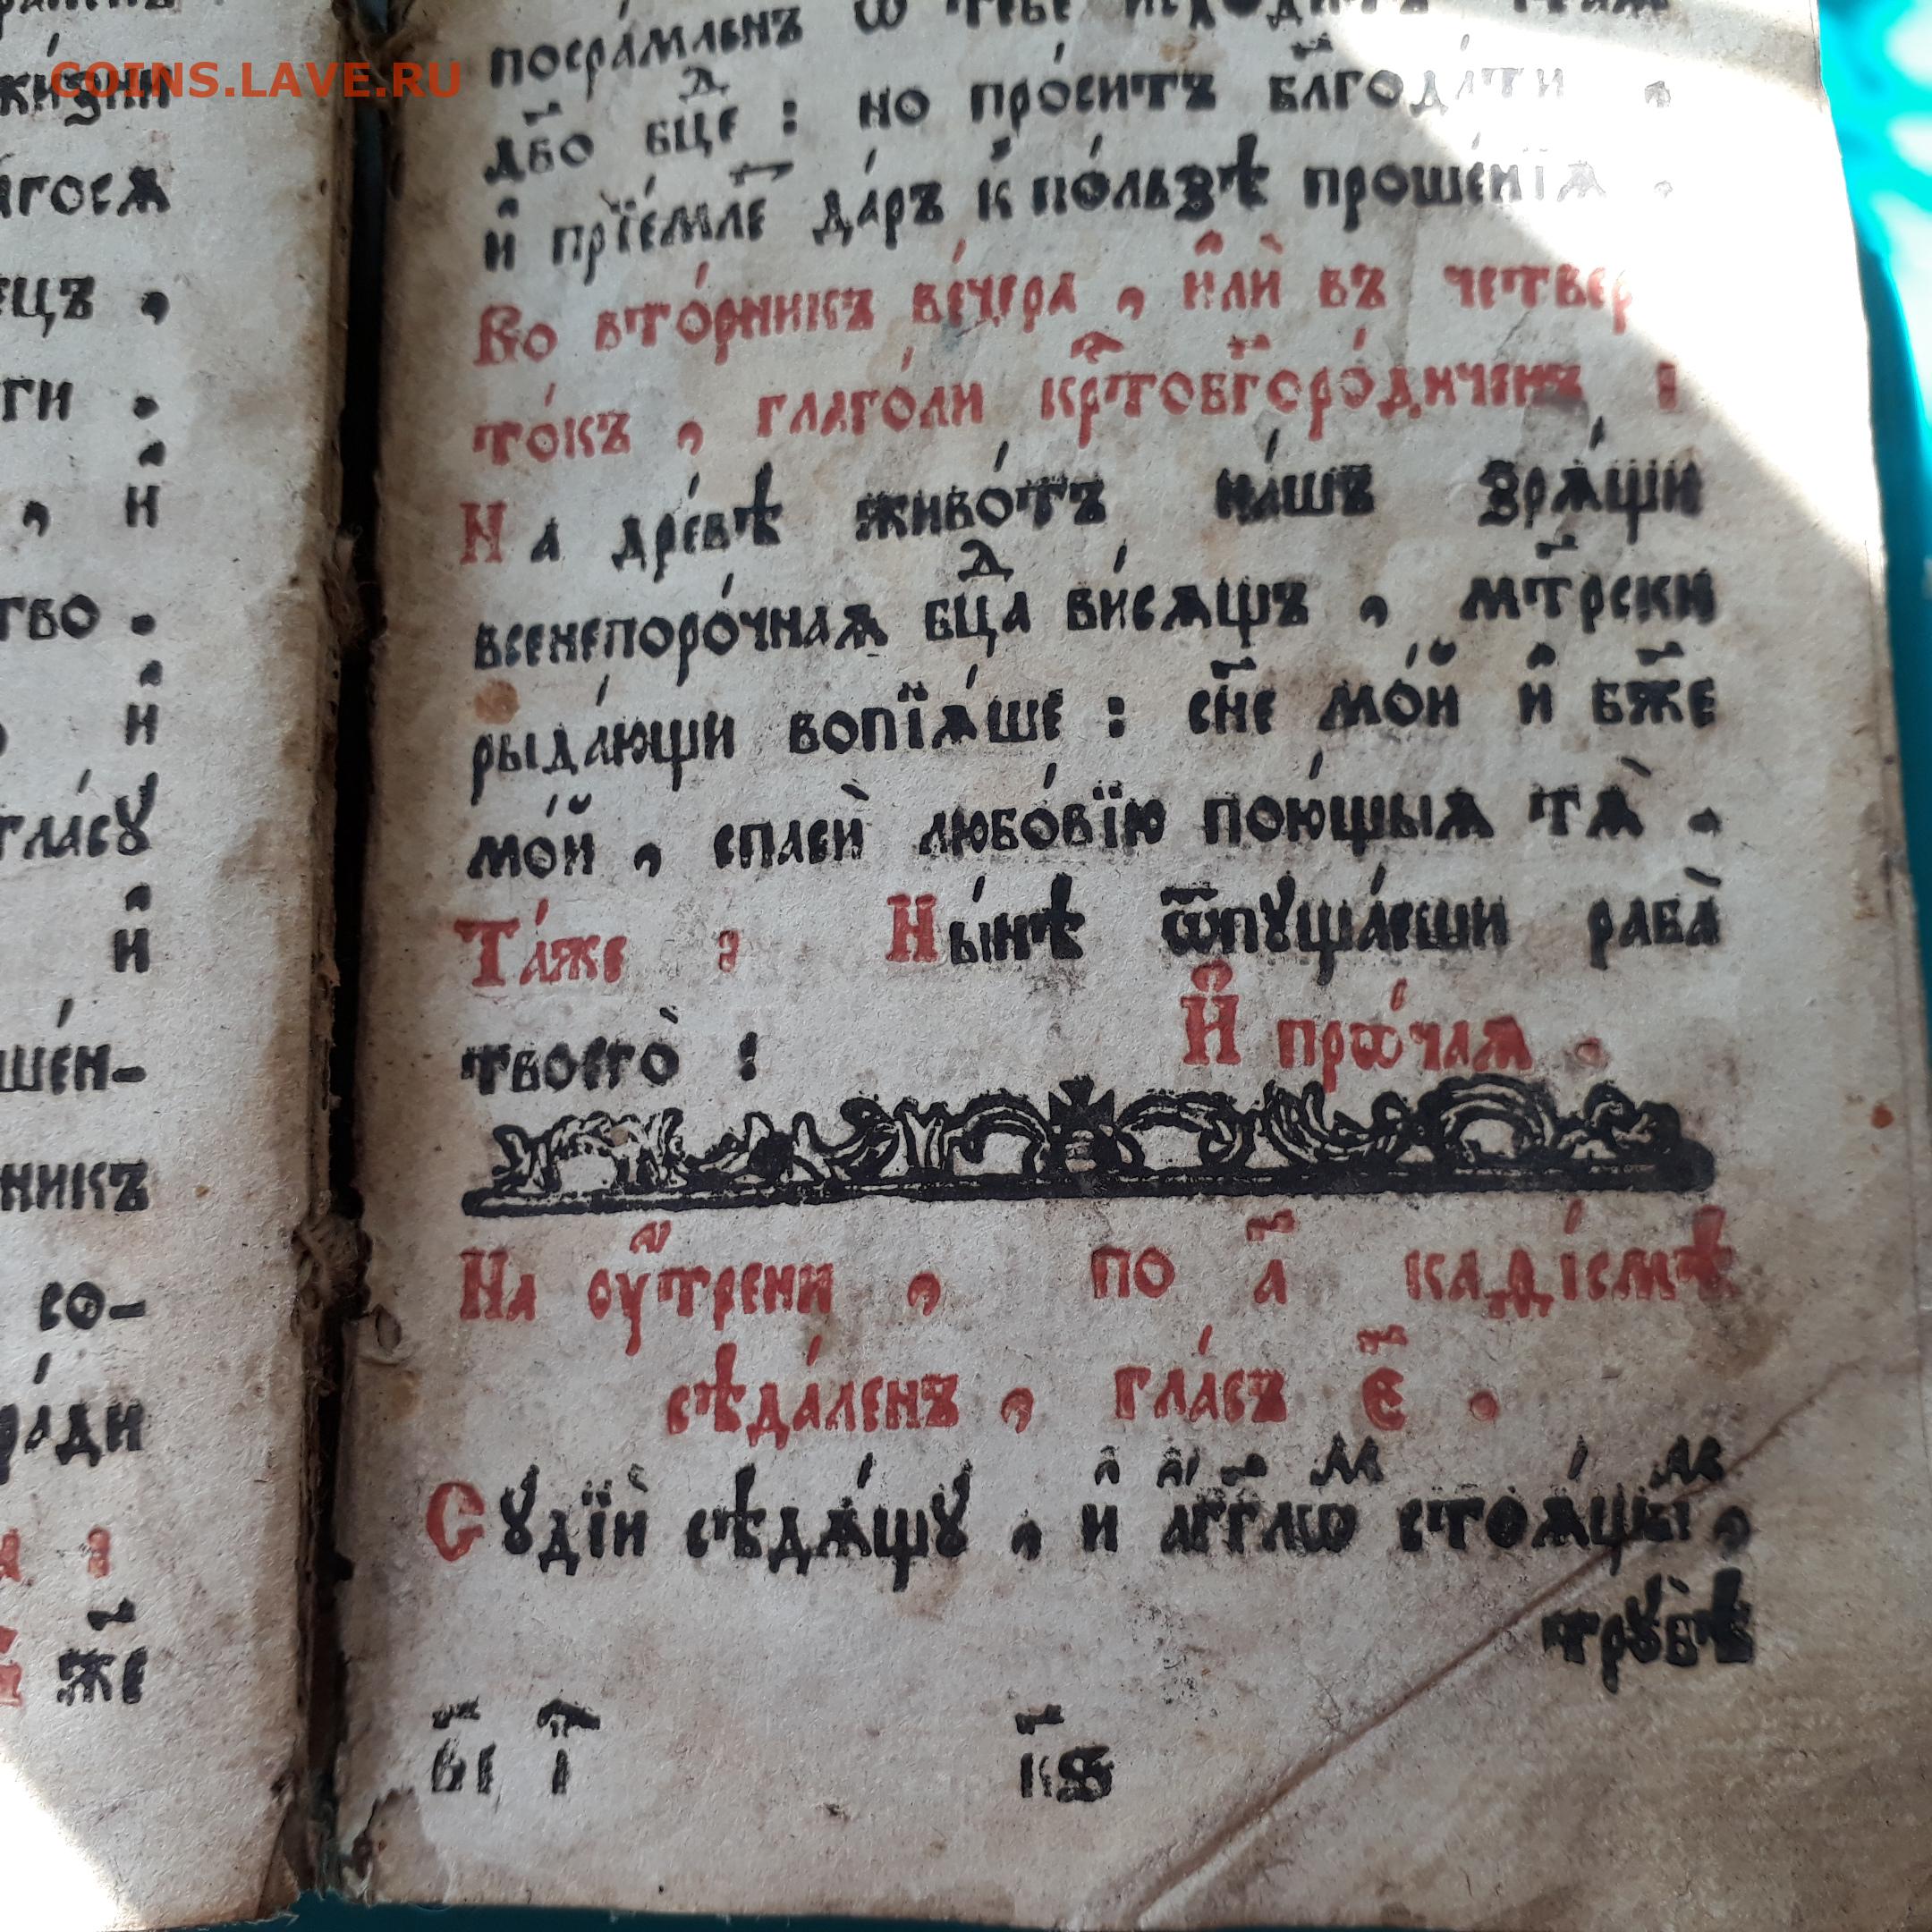 COINS.LAVE.RU
жи́зни
агося
ецъ ,
ги .
, и҆
тво .
и҆
гла́сꙋ
и҆
ше́н-
никъ
со-
ра́ди
же
посра́мленъ ѿ тебѐ исхо́дитъ
дв҃о бцⷣе : но про́ситъ бл҃года́ти ,
и҆ прїе́мле да́ръ к̾ по́льзѣ проше́нїѧ .
Во вто́рникъ ве́чера , и҆лѝ въ четвер
то́къ , глаго́ли кр҇тобг҃оро́диченъ :
На дре́вѣ живо́тъ на́шъ зрѧ́щи
всенепоро́чнаѧ бцⷣа ви́сѧщъ , мт҃рски
рыда́ющи вопїѧ́ше : сн҃е мо́й и҆ бж҃е
мо́й , спасѝ любо́вїю пою́щыѧ тѧ̀ .
Та́же : Ны́нѣ ѿпꙋща́еши раба̀
твоего̀ : И҆ прѡ́чаѧ .
На ᲂу҆́трени , по а҃ каѳі́смѣ
сѣда́ленъ , гла́съ є҃ .
Сꙋдїѝ сѣдѧ́щꙋ , и҆ а҆́гг҃лѡⷨ стоѧ́щыⷨ ,
трꙋбѣ̀
в҃і і҃ к҃ѕ